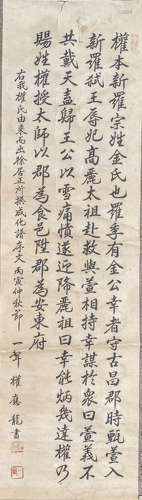 權本新羅宗姓金氏也羅季有金公幸者守古昌郡時甄萱入
新羅弑王辱妃高麗太祖赴救與萱相持幸謀於衆曰萱義不
共戴天盍歸王公以雪痛憤遂迎降麗祖曰幸能炳幾達權乃
賜姓權授太師以郡爲食邑陞郡爲安東府
右我權氏由來而出徐居正所撰成化譜序文 丙寅仲秋節
一軒 權 龍 書